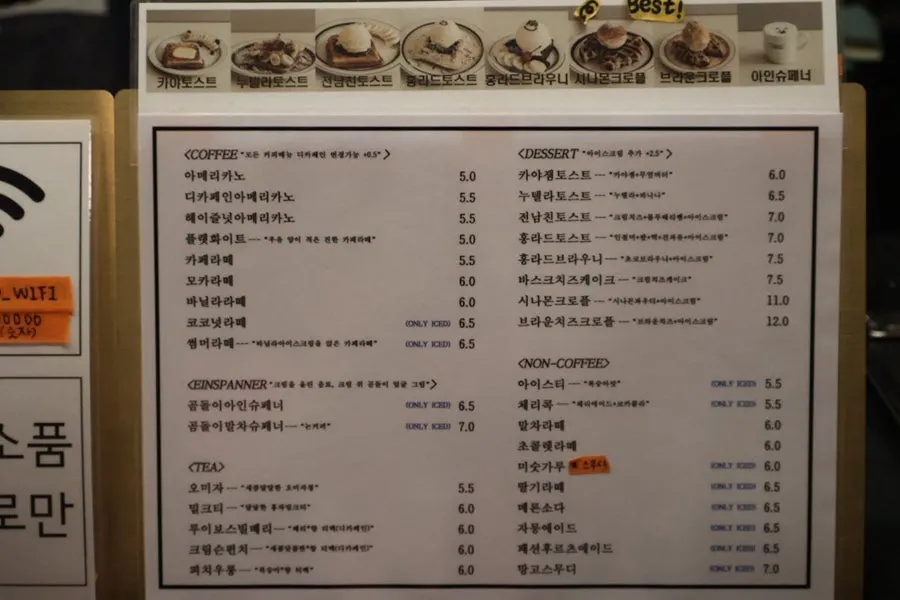 Best!
카야토스트 누텔라토스트 전남친토스트 홍라드토스트 홍라드브라우니 시나몬크로플 브라운크로플 아인슈페너
_WIFI
(숫자)
소품
로만
<COFFEE "모든 커피메뉴 디카페인 변경가능 +0.5">
아메리카노 5.0
디카페인아메리카노 5.5
헤이즐넛아메리카노 5.5
플랫화이트 — "우유 양이 적은 진한 카페라떼" 5.0
카페라떼 5.5
모카라떼 6.0
바닐라라떼 6.0
코코넛라떼 (ONLY ICED) 6.5
썸머라떼 — "바닐라아이스크림을 얹은 카페라떼" (ONLY ICED) 6.5
<EINSPANNER "크림을 올린 음료, 크림 위 곰돌이 얼굴 그림">
곰돌이아인슈페너 (ONLY ICED) 6.5
곰돌이말차슈페너 — "논커피" (ONLY ICED) 7.0
<TEA>
오미자 — "새콤달달한 오미자청" 5.5
밀크티 — "달달한 홍차밀크티" 6.0
루이보스빌베리 — "베리*향 티백(디카페인)" 6.0
크림슨펀치 — "새콤달콤한*향 티백(디카페인)" 6.0
피치우롱 — "복숭아*향 티백" 6.0
<DESSERT "아이스크림 추가 +2.5">
카야잼토스트 — "카야잼+무염버터" 6.0
누텔라토스트 — "누텔라+바나나" 6.5
전남친토스트 — "크림치즈+블루베리잼+아이스크림" 7.0
홍라드토스트 — "인절미+팥+떡+견과류+아이스크림" 7.0
홍라드브라우니 — "초코브라우니+아이스크림" 7.5
바스크치즈케이크 — "크림치즈케이크" 7.5
시나몬크로플 — "시나몬파우더+아이스크림" 11.0
브라운치즈크로플 — "브라운치즈+아이스크림" 12.0
<NON-COFFEE>
아이스티 — "복숭아맛" (ONLY ICED) 5.5
체리콕 — "체리에이드+코카콜라" (ONLY ICED) 5.5
말차라떼 6.0
초콜렛라떼 6.0
미숫가루 (ONLY ICED) 6.0
딸기라떼 (ONLY ICED) 6.5
메론소다 (ONLY ICED) 6.5
자몽에이드 (ONLY ICED) 6.5
패션후르츠에이드 (ONLY ICED) 6.5
망고스무디 (ONLY ICED) 7.0